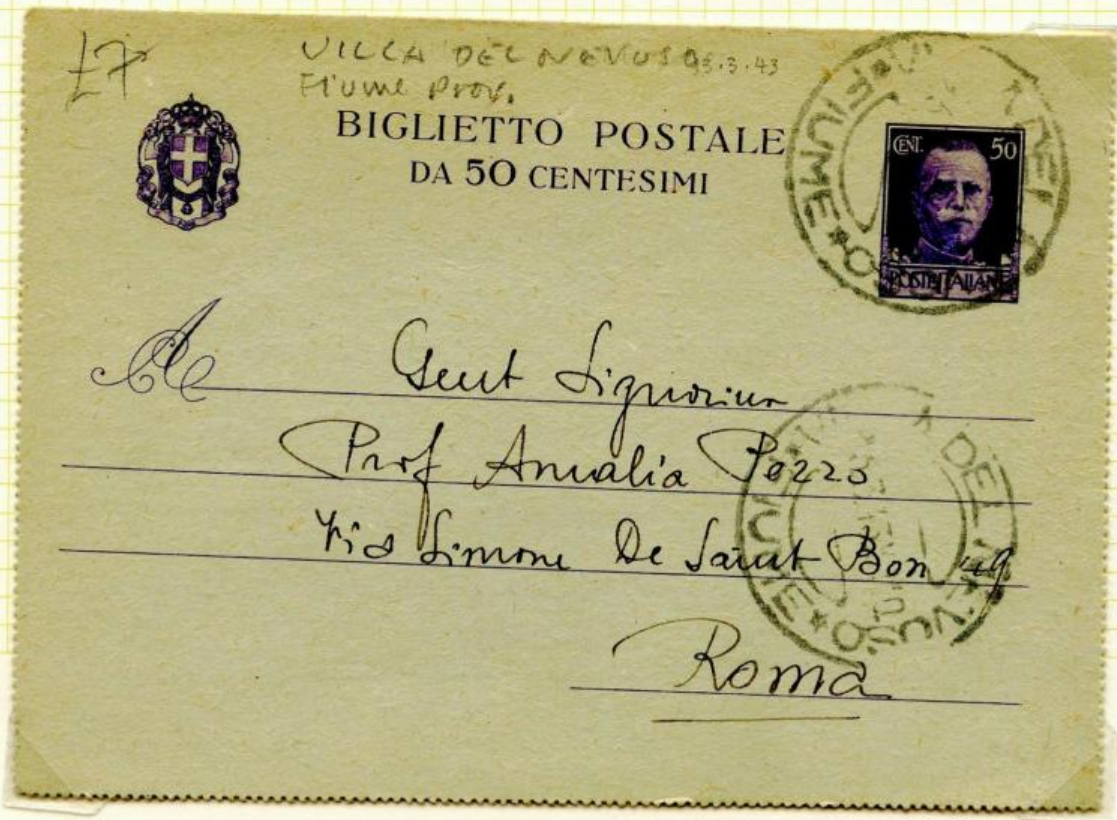 £7 VILLA DEL NEVUSO 3.3.43
Fiume Prov.
BIGLIETTO POSTALE
DA 50 CENTESIMI
CENT. 50
POSTE ITALIANE
FIUME * DEL
A Gent Signorina
Prof Amalia Pezzo
Via Simone De Saint Bon 49
Roma
DEL NEVOSO * FIUME